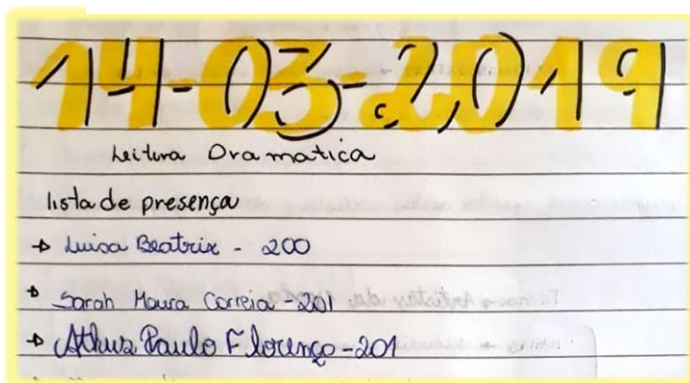 14-03-2019
Leitura Dramatica
lista de presença
→ Luisa Beatrix - 200
→ Sarah Maura Correia - 201
→ Athur Paulo Florenço - 201